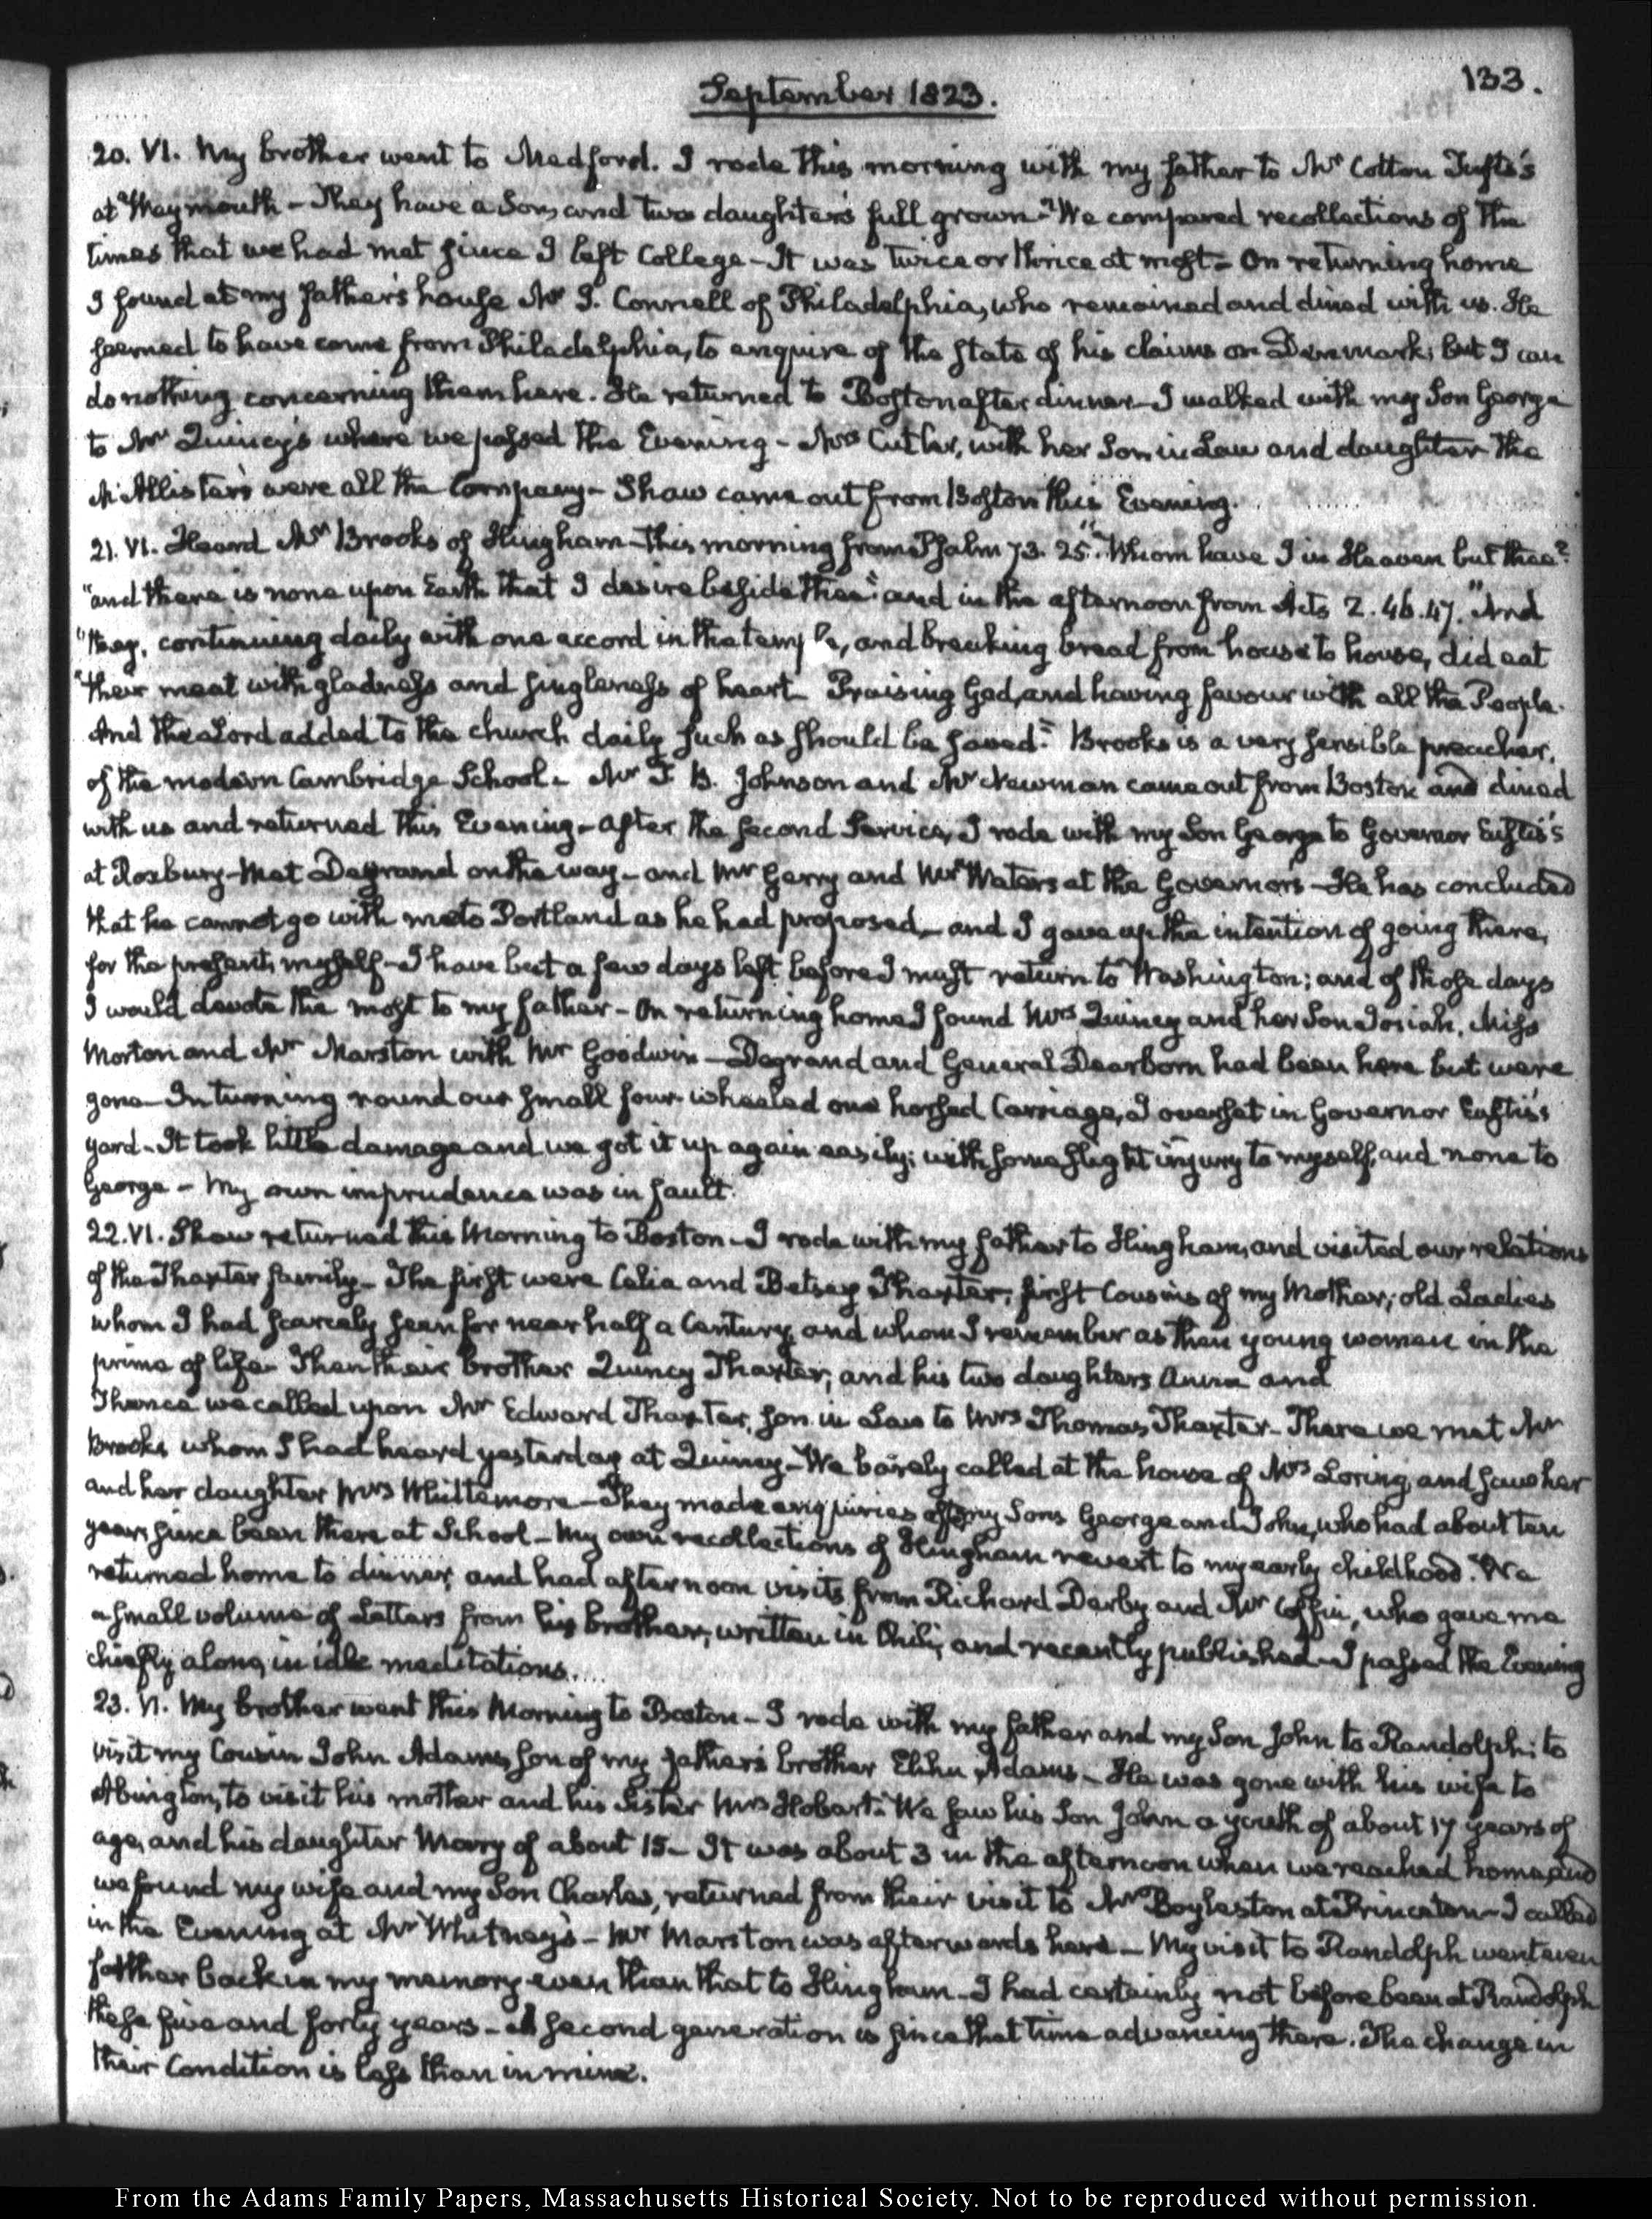 133.
September 1823.
20. VI. My brother went to Medford. I rode this morning with my father to Mr Cotton Tufts's
at Weymouth – They have a Son, and two daughters full grown – We compared recollections of the
times that we had met since I left College – It was twice or thrice at most – On returning home
I found at my father's house Mr J. Connell of Philadelphia, who remained and dined with us. He
seemed to have come from Philadelphia, to enquire of the state of his claims on Denmark; but I can
do nothing concerning them here. He returned to Boston after dinner – I walked with my Son George
to Mr Quincy's where we passed the Evening – Mrs Cutler, with her Son in Law and daughter the
McAllisters were all the Company – Shaw came out from Boston this Evening.
21. VI. Heard Mr Brooks of Hingham – this morning from Psalm 73. 25. "Whom have I in Heaven but thee?
"and there is none upon Earth that I desire beside thee" and in the afternoon from Acts 2. 46. 47. "And
"they, continuing daily with one accord in the temple, and breaking bread from house to house, did eat
"their meat with gladness and singleness of heart – Praising God, and having favour with all the People.
And the Lord added to the church daily such as should be saved." Brooks is a very sensible preacher,
of the modern Cambridge School – Mr F B. Johnson and Mr Newman came out from Boston and dined
with us and returned this Evening – After the second Service, I rode with my Son George to Governor Eustis's
at Roxbury – Met Degrand on the way – and Mr Gerry and Mr Waters at the Governor's – He has concluded
that he cannot go with me to Portland as he had proposed – and I gave up the intention of going there,
for the present, myself – I have but a few days left before I must return to Washington; and of those days
I would devote the most to my father – On returning home I found Mrs Quincy and her Son Josiah, Miss
Morton and Mr Marston with Mr Goodwin – Degrand and General Dearborn had been here but were
gone – In turning round our small four wheeled one horsed Carriage, I overset in Governor Eustis's
yard – It took little damage and we got it up again easily; with some slight injury to myself, and none to
George – My own imprudence was in fault.
22. VI. Shaw returned this Morning to Boston – I rode with my father to Hingham, and visited our relations
of the Thaxter family – The first were Celia and Betsey Thaxter, first Cousins of my Mother; old Ladies
whom I had scarcely seen for near half a Century, and whom I remember as then young women in the
prime of life – Then their brother Quincy Thaxter, and his two daughters Anna and
Thence we called upon Mr Edward Thaxter, Son in Law to Mrs Thomas Thaxter – There we met Mr
Brooks whom I had heard yesterday at Quincy – We barely called at the house of Mrs Loring, and saw her
and her daughter Mrs Whittemore – They made enquiries after my Sons George and John, who had about ten
years since been there at School – My own recollections of Hingham revert to my early childhood. We
returned home to dinner, and had afternoon visits from Richard Derby and Mr Coffin, who gave me
a small volume of Letters from his brother, written in Chili, and recently published – I passed the Evening
chiefly alone, in idle meditations.
23. VI. My brother went this Morning to Boston – I rode with my father and my Son John to Randolph; to
visit my Cousin John Adams, son of my father's brother Elihu Adams – He was gone with his wife to
Abington, to visit his mother and his Sister Mrs Hobart. We saw his Son John a youth of about 17 years of
age, and his daughter Mary of about 15 – It was about 3 in the afternoon when we reached home, and
we found my wife and my Son Charles, returned from their visit to Mr Boylston at Princeton – I called
in the Evening at Mr Whitney's – Mr Marston was afterwards here – My visit to Randolph went even
farther back in my memory even than that to Hingham – I had certainly not before been at Randolph
these five and forty years – A second generation is since that time advancing there. The change in
their Condition is less than in mine.
From the Adams Family Papers, Massachusetts Historical Society. Not to be reproduced without permission.